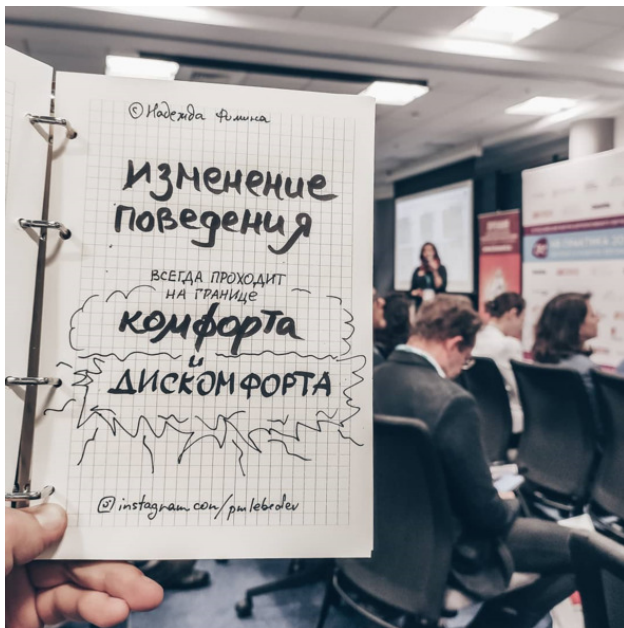 © Надежда Фомина
Изменение
поведения
ВСЕГДА ПРОХОДИТ
НА ГРАНИЦЕ
комфорта
и
ДИСКОМФОРТА
instagram.com/pmlebedev
ПРАКТИКА